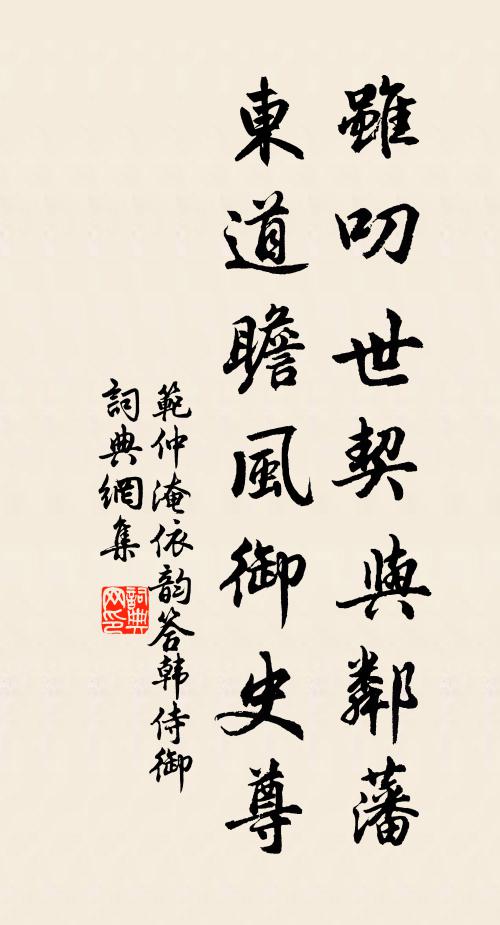 雖叨世契與鄰藩
東道瞻風御史尊
範仲淹依韵答韩侍御
詞典網集
詞典网印